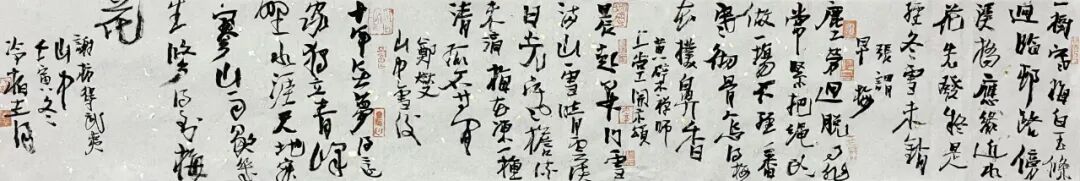 一樹寒梅白玉條
迥臨邨路傍
溪橋應緣近水
花先發疑是
經冬雪未銷
張謂
早梅
塵勞迥脫事非
常緊把繩頭
做一場不經一番
寒徹骨怎得梅
花撲鼻香
黃檗禪師
上堂開示頌
晨起開門雪
滿山雪晴雲淡
日光寒檐流
未滴梅花凍一種
清孤不等閒
鄭燮
山中雪後
十年無夢得還
家獨立青峰
野水涯天地寂
寥山雨歇幾
生修得到梅
花
謝枋得武夷
山中
壬寅冬